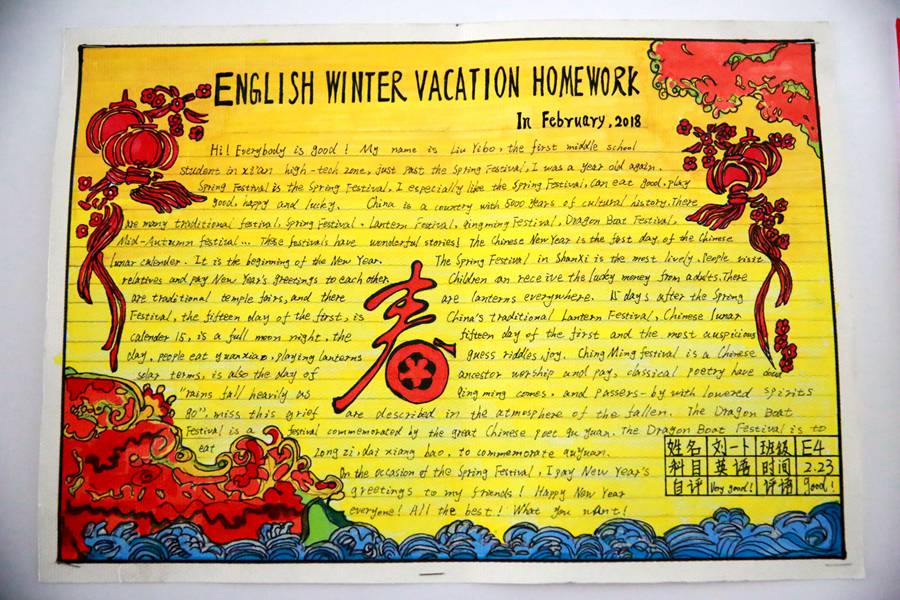 ENGLISH WINTER VACATION HOMEWORK
In February, 2018
Hi! Everybody is good! My name is Liu Yibo, the first middle school
student in xi'an high-tech zone, just past the Spring Festival, I was a year old again.
Spring Festival is the Spring Festival, I especially like the Spring Festival, can eat good, play
good, happy and lucky. China is a country with 5000 years of cultural history. There
are many traditional festival, Spring Festival, Lantern Festival, qingming Festival, Dragon Boat Festival,
Mid-Autumn festival... These festivals have wonderful stories! The Chinese New Year is the first day of the Chinese
lunar calender. It is the beginning of the New Year. The Spring Festival in ShanXi is the most lively. People visit
relatives and pay New Year's greetings to each other. Children can receive the lucky money from adults. There
are traditional temple fairs, and there are lanterns everywhere. 15 days after the Spring
Festival, the fifteen day of the first, is China's traditional Lantern Festival, Chinese lunar
calender 15, is a full moon night, the fifteen day of the first and the most auspicious
day, people eat yuanxiao, playing lanterns guess riddles, joy. Ching Ming festival is a Chinese
solar terms, is also the day of ancestor worship and pay, classical poetry have dead
"rains fall heavily as qing ming comes, and passers-by with lowered spirits
go", miss this grief are described in the atmosphere of the fallen. The Dragon Boat
Festival is a festival commemorated by the great Chinese poet qu yuan. The Dragon Boat Festival is to
eat zong zi, dai xiang bao, to commemorate quyuan.
On the occasion of the Spring Festival, I pay New Year's
greetings to my friends! Happy New Year
everyone! All the best! What you want!
春
姓名 刘一卜 班级 E4
科目 英语 时间 2.23
自评 Very good! 评语 good!